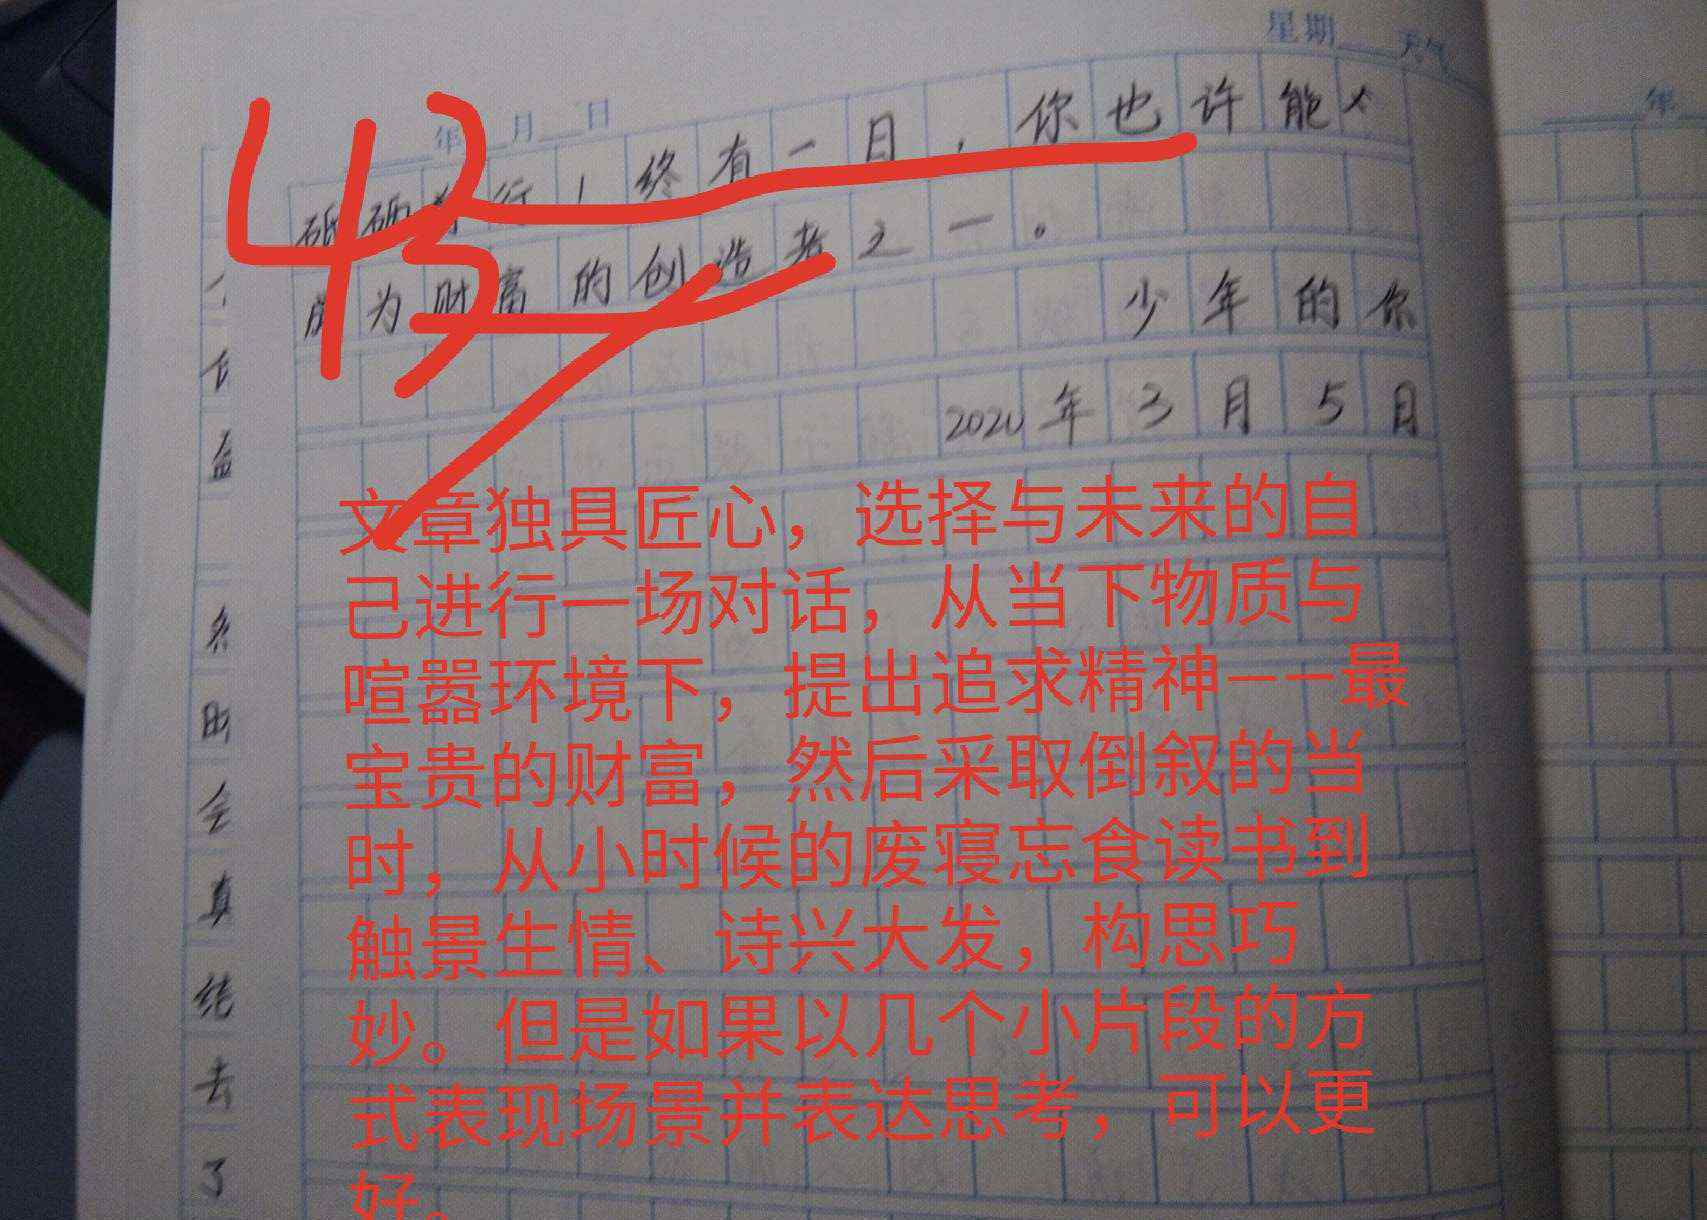 星期 天气
年 月 日
年
砥砺前行，终有一日，你也许能
成为财富的创造者之一。
少年的你
2020年3月5日
43
文章独具匠心，选择与未来的自
己进行一场对话，从当下物质与
喧嚣环境下，提出追求精神——最
宝贵的财富，然后采取倒叙的当
时，从小时候的废寝忘食读书到
触景生情、诗兴大发，构思巧
妙。但是如果以几个小片段的方
式表现场景并表达思考，可以更
好。
会
真
结
去
了